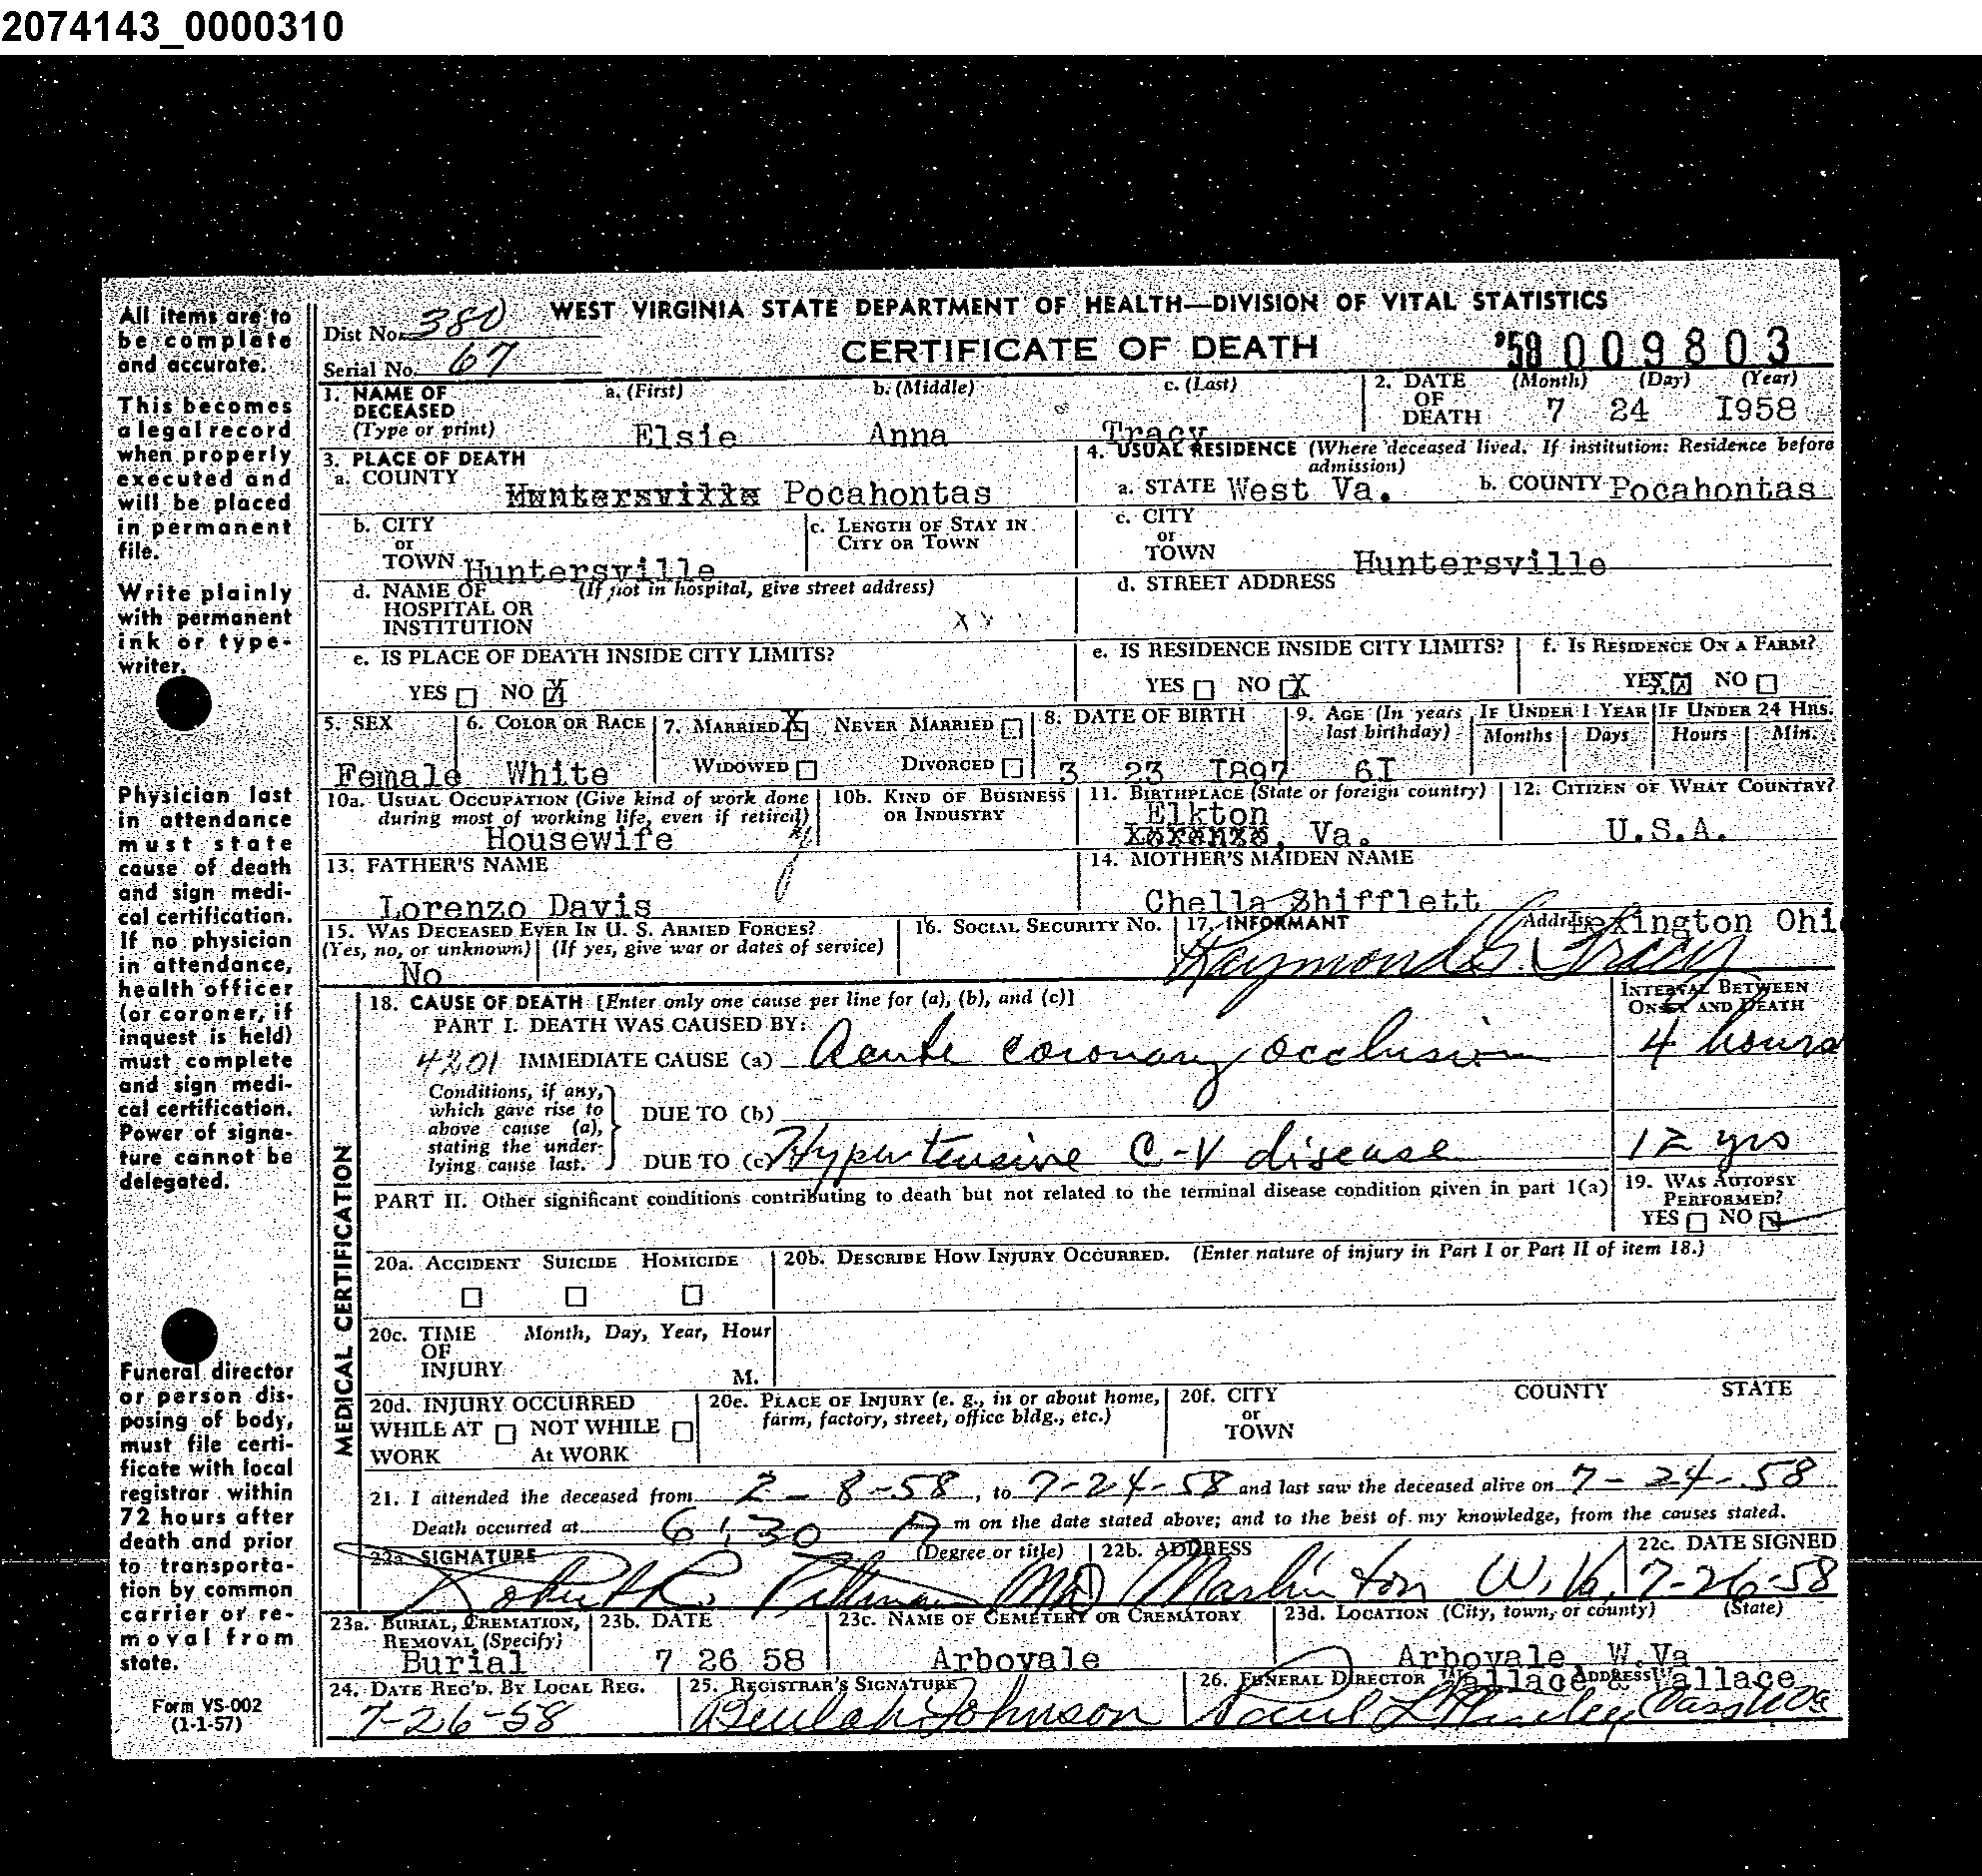 2074143_0000310
All items are to
be complete
and accurate.
This becomes
a legal record
when properly
executed and
will be placed
in permanent
file.
Write plainly
with permanent
ink or type-
writer.
Physician last
in attendance
must state
cause of death
and sign medi-
cal certification.
If no physician
in attendance,
health officer
(or coroner, if
inquest is held)
must complete
and sign medi-
cal certification.
Power of signa-
ture cannot be
delegated.
Funeral director
or person dis-
posing of body,
must file certi-
ficate with local
registrar within
72 hours after
death and prior
to transporta-
tion by common
carrier or re-
moval from
state.
Form VS-002
(1-1-57)
WEST VIRGINIA STATE DEPARTMENT OF HEALTH—DIVISION OF VITAL STATISTICS
Dist No. 380
Serial No. 67
CERTIFICATE OF DEATH
'58 009803
1. NAME OF DECEASED (Type or print) a. (First) b. (Middle) c. (Last)
Elsie Anna Tracy
2. DATE OF DEATH (Month) (Day) (Year)
7 24 I958
3. PLACE OF DEATH
a. COUNTY Huntersville Pocahontas
4. USUAL RESIDENCE (Where deceased lived. If institution: Residence before admission)
a. STATE West Va. b. COUNTY Pocahontas
b. CITY or TOWN Huntersville
c. LENGTH OF STAY IN CITY OR TOWN
c. CITY or TOWN Huntersville
d. NAME OF HOSPITAL OR INSTITUTION (If not in hospital, give street address)
d. STREET ADDRESS
e. IS PLACE OF DEATH INSIDE CITY LIMITS?
YES NO X
e. IS RESIDENCE INSIDE CITY LIMITS?
YES NO X
f. IS RESIDENCE ON A FARM?
YES X NO
5. SEX
Female
6. COLOR OR RACE
White
7. MARRIED X NEVER MARRIED
WIDOWED DIVORCED
8. DATE OF BIRTH
3 23 I897
9. AGE (In years last birthday)
6I
IF UNDER 1 YEAR
Months Days
IF UNDER 24 HRS.
Hours Min.
10a. USUAL OCCUPATION (Give kind of work done during most of working life, even if retired)
Housewife
10b. KIND OF BUSINESS OR INDUSTRY
11. BIRTHPLACE (State or foreign country)
Elkton
Lorenzo, Va.
12. CITIZEN OF WHAT COUNTRY?
U.S.A.
13. FATHER'S NAME
Lorenzo Davis
14. MOTHER'S MAIDEN NAME
Chella Shifflett
15. WAS DECEASED EVER IN U. S. ARMED FORCES?
(Yes, no, or unknown) (If yes, give war or dates of service)
No
16. SOCIAL SECURITY No.
17. INFORMANT Address Lexington Ohio
Raymond S. Tracy
18. CAUSE OF DEATH [Enter only one cause per line for (a), (b), and (c)]
INTERVAL BETWEEN ONSET AND DEATH
PART I. DEATH WAS CAUSED BY:
4201 IMMEDIATE CAUSE (a) Acute coronary occlusion 4 hours
Conditions, if any, which gave rise to above cause (a), stating the underlying cause last.
DUE TO (b)
DUE TO (c) Hypertensive C-V disease 12 yrs
PART II. Other significant conditions contributing to death but not related to the terminal disease condition given in part 1(a)
19. WAS AUTOPSY PERFORMED?
YES NO
MEDICAL CERTIFICATION
20a. ACCIDENT SUICIDE HOMICIDE
20b. DESCRIBE HOW INJURY OCCURRED. (Enter nature of injury in Part I or Part II of item 18.)
20c. TIME OF INJURY Month, Day, Year, Hour
M.
20d. INJURY OCCURRED
WHILE AT WORK NOT WHILE At WORK
20e. PLACE OF INJURY (e. g., in or about home, farm, factory, street, office bldg., etc.)
20f. CITY or TOWN COUNTY STATE
21. I attended the deceased from 2-8-58, to 7-24-58 and last saw the deceased alive on 7-24-58
Death occurred at 6:30 A m on the date stated above; and to the best of my knowledge, from the causes stated.
22a. SIGNATURE (Degree or title)
Robert R. Pittman MD
22b. ADDRESS
Marlinton W.Va.
22c. DATE SIGNED
7-26-58
23a. BURIAL, CREMATION, REMOVAL (Specify)
Burial
23b. DATE
7 26 58
23c. NAME OF CEMETERY OR CREMATORY
Arbovale
23d. LOCATION (City, town, or county) (State)
Arbovale, W.Va
24. DATE REC'D. BY LOCAL REG.
7-26-58
25. REGISTRAR'S SIGNATURE
Beulah Johnson
26. FUNERAL DIRECTOR ADDRESS
Wallace & Wallace
Paul L